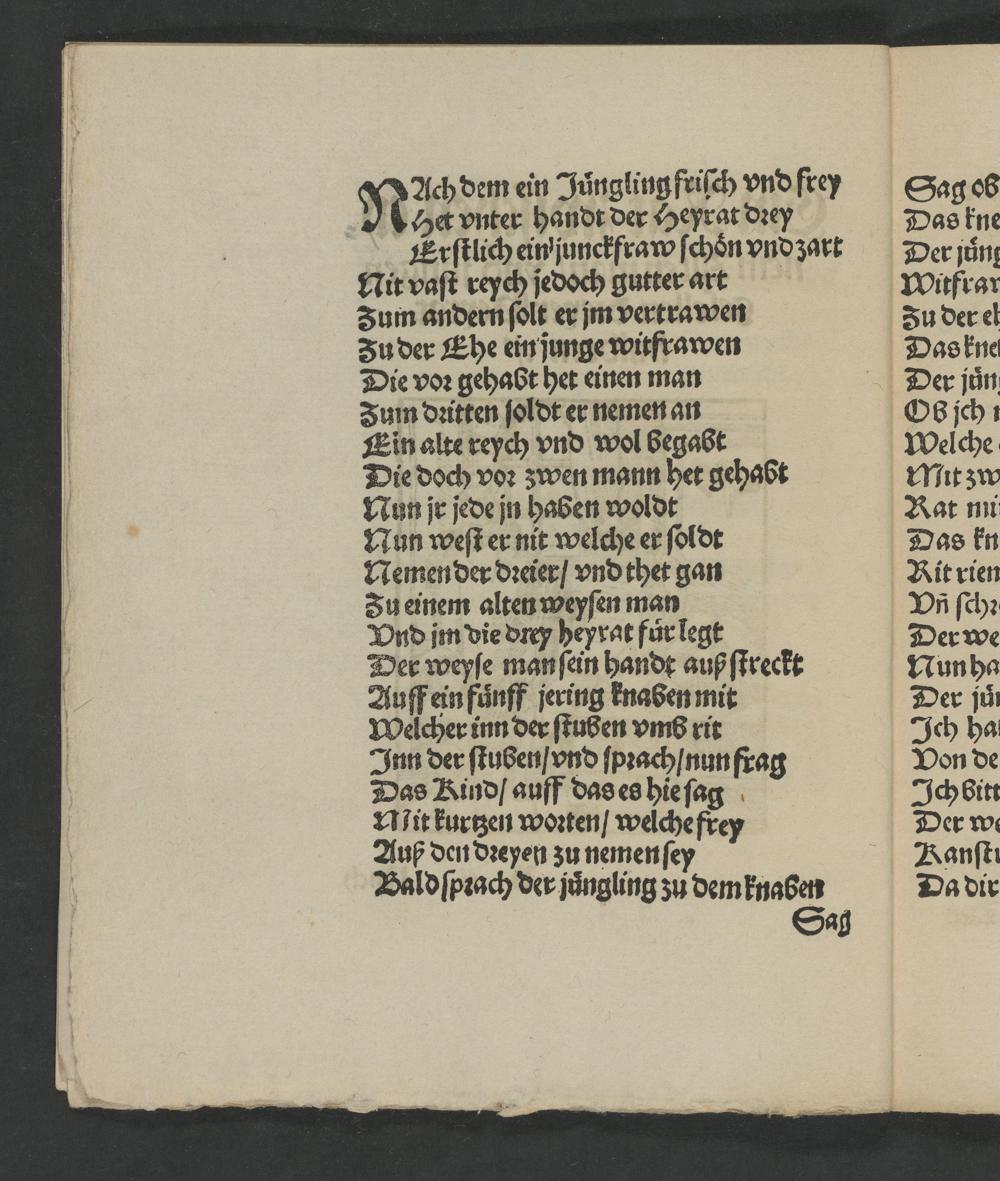 NAch dem ein Jüngling frisch vnd frey
Het vnter handt der Heyrat drey
Erstlich ein junckfraw schön vnd zart
Nit vast reych jedoch gutter art
Zum andern solt er jm vertrawen
Zu der Ehe ein junge witfrawen
Die vor gehabt het einen man
Zum dritten soldt er nemen an
Ein alte reych vnd wol begabt
Die doch vor zwen mann het gehabt
Nun jr jede jn haben woldt
Nun west er nit welche er soldt
Nemen der dreier/ vnd thet gan
Zu einem alten weysen man
Vnd jm die drey heyrat für legt
Der weyse man sein handt auß streckt
Auff ein fünff jering knaben mit
Welcher inn der stuben vmb rit
Inn der stuben/ vnd sprach/ nun frag
Das Kind/ auff das es hie sag
Mit kurtzen worten/ welche frey
Auß den dreyen zu nemen sey
Bald sprach der jüngling zu dem knaben
Sag
Sag ob
Das kne
Der jüng
Witfraw
Zu der eh
Das kne
Der jün
Ob jch
Welche
Mit zw
Rat mi
Das kn
Rit rien
Vñ schr
Der we
Nun ha
Der jün
Ich ha
Von de
Ich bitt
Der we
Kanstu
Da dir